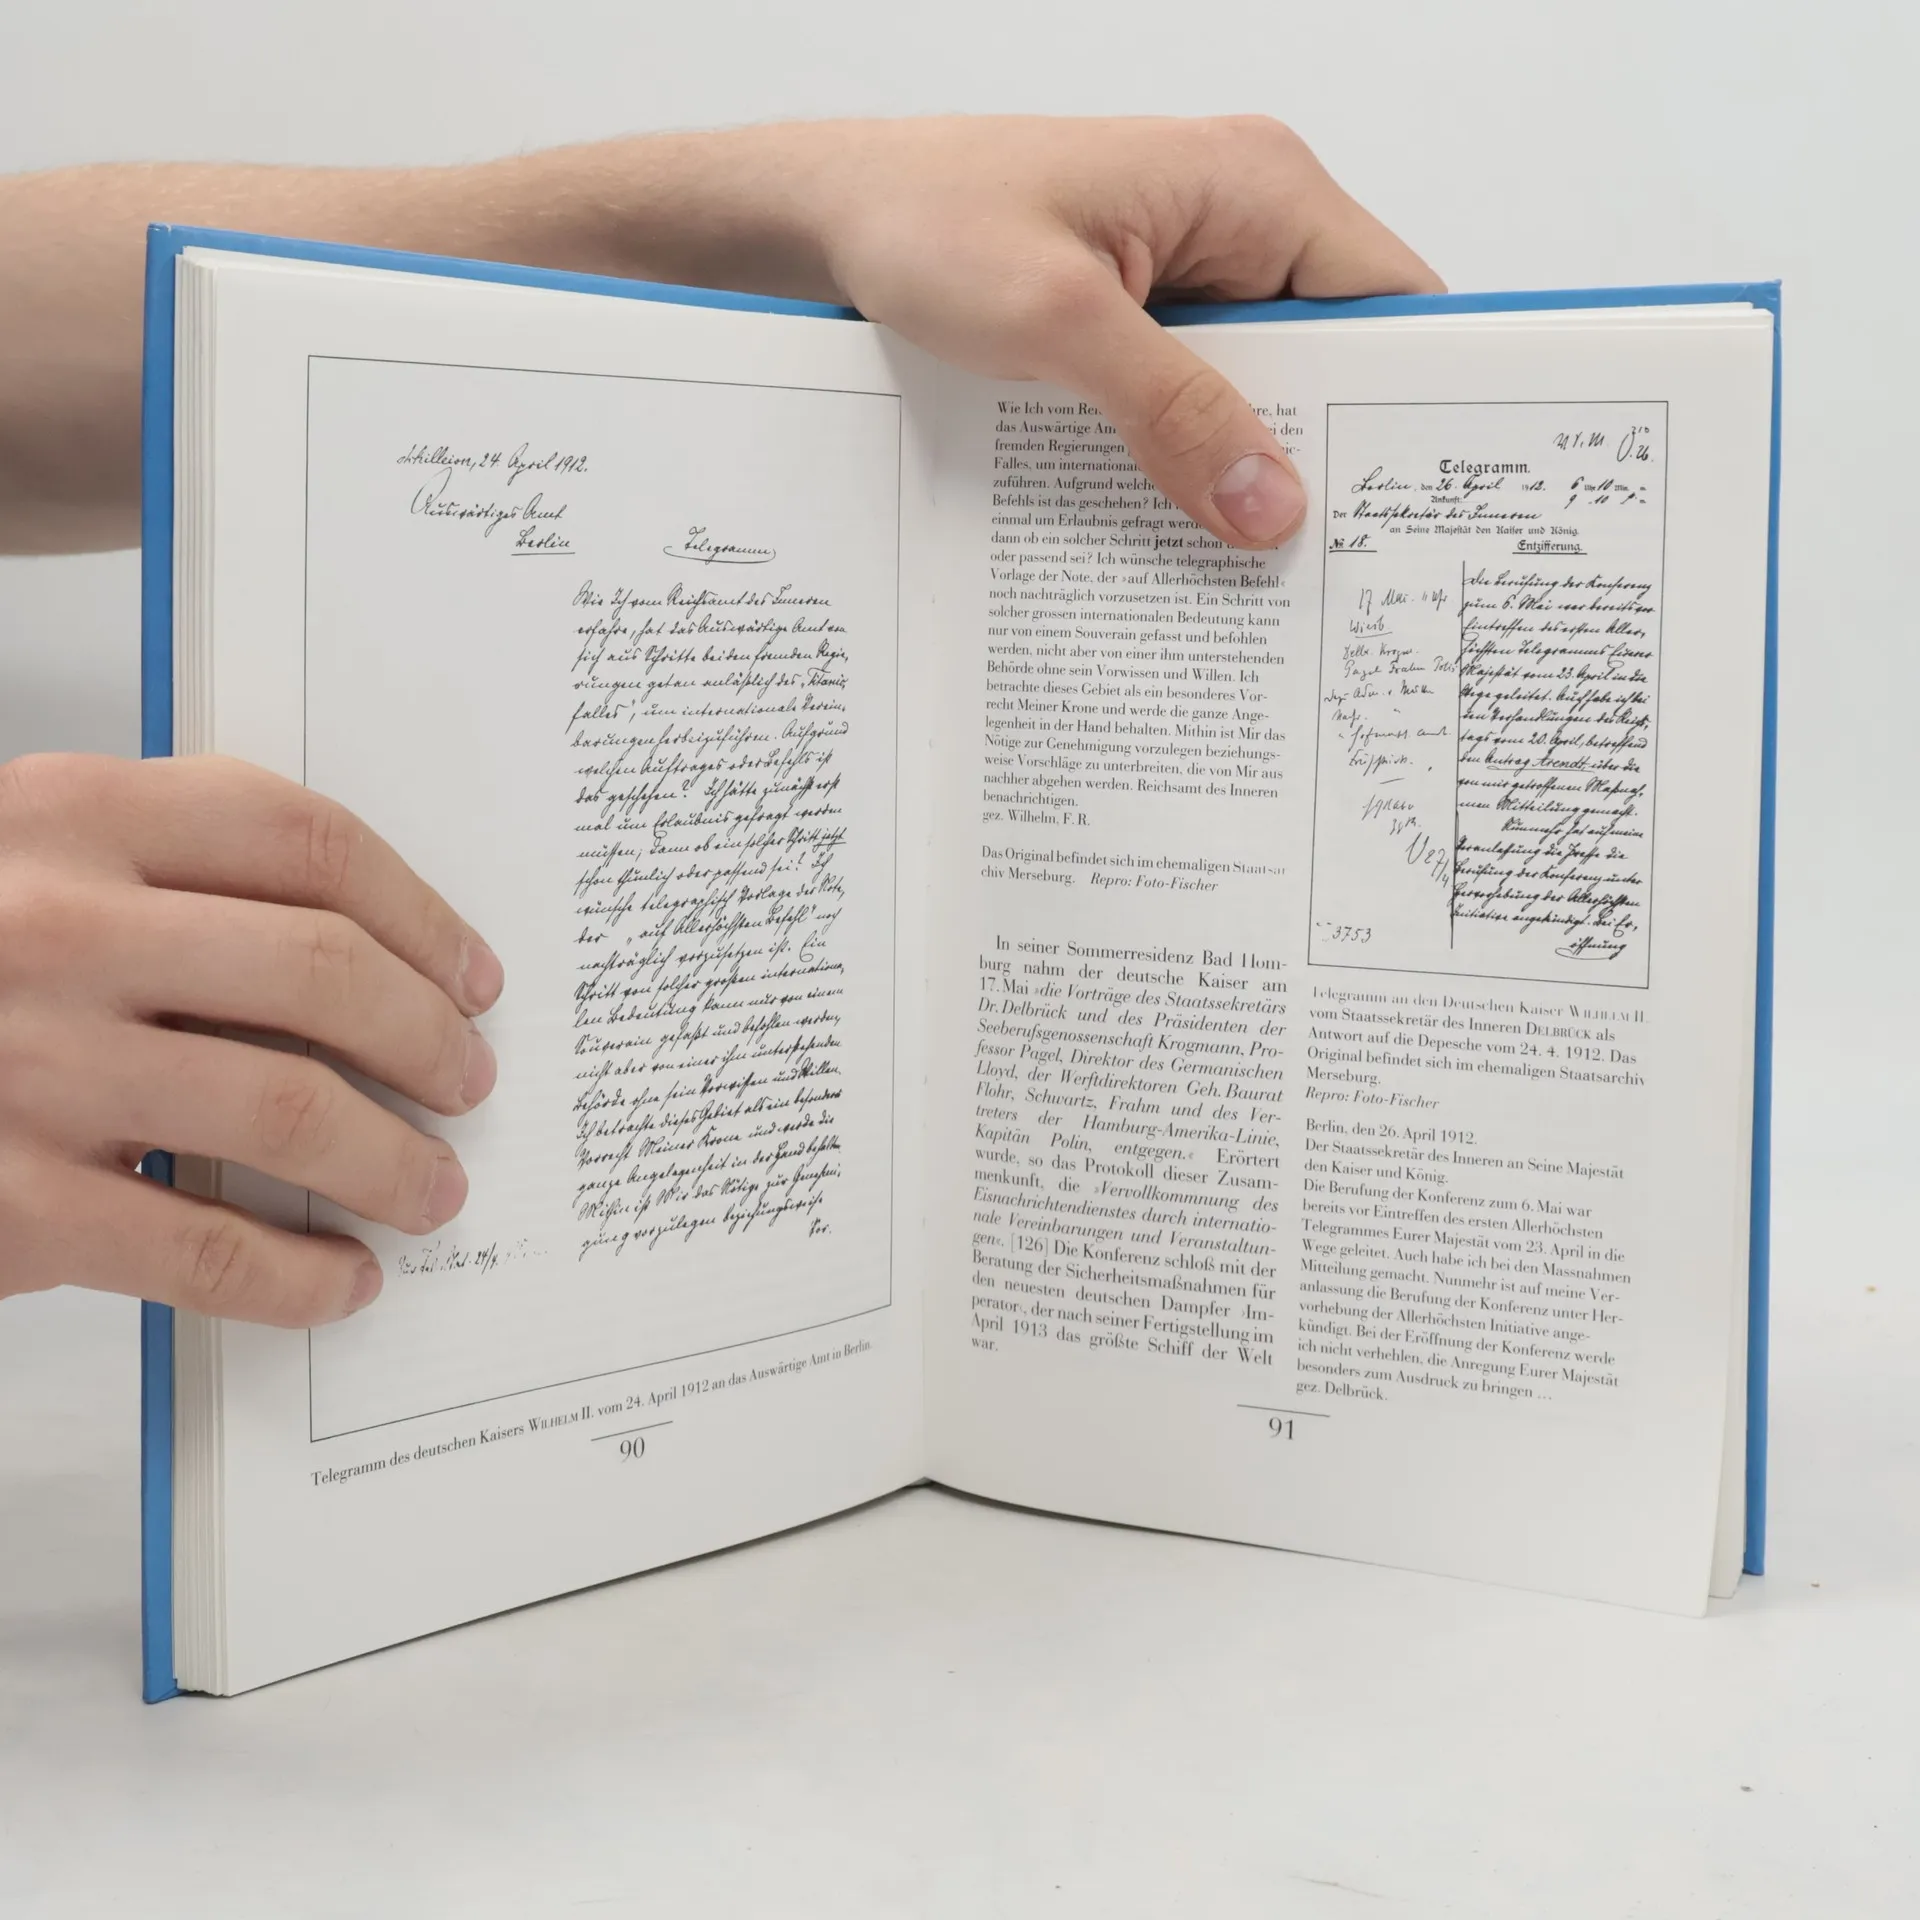 Achilleion, 24. April 1912.
Auswärtiges Amt
Berlin
Telegramm
Wie Ich vom Reichsamt des Inneren
erfahre, hat das Auswärtige Amt von
sich aus Schritte bei den fremden Regie-
rungen getan anläßlich des „Titanic
falles", um internationale Verein-
barungen herbeizuführen. Aufgrund
welchen Auftrages oder Befehls ist
das geschehen? Ich hätte zunächst erst
mal um Erlaubnis gefragt werden
müssen; dann ob ein solcher Schritt jetzt
schon thunlich oder passend sei? Ich
wünsche telegraphisch Vorlage der Note,
der „auf Allerhöchsten Befehl" noch
nachträglich vorzusetzen ist. Ein
Schritt von solcher großen internationa-
len Bedeutung kann nur von einem
Souverain gefaßt und befohlen werden,
nicht aber von einer ihm unterstehenden
Behörde ohne sein Vorwissen und Willen.
Ich betrachte dieses Gebiet als ein besonderes
Vorrecht Meiner Krone und werde die
ganze Angelegenheit in der Hand behalten.
Mithin ist Mir das Nötige zur Genehmi-
gung vorzulegen beziehungsweise
Vor.
Telegramm des deutschen Kaisers WILHELM II. vom 24. April 1912 an das Auswärtige Amt in Berlin.
90
Wie Ich vom hat
das Auswärtige den
fremden Regierungen
Falles, um
zuführen. Aufgrund
Befehls ist das geschehen? Ich
einmal um Erlaubnis gefragt
dann ob ein solcher Schritt jetzt schon
oder passend sei? Ich wünsche telegraphische
Vorlage der Note, der »auf Allerhöchsten Befehl«
noch nachträglich vorzusetzen ist. Ein Schritt von
solcher grossen internationalen Bedeutung kann
nur von einem Souverain gefasst und befohlen
werden, nicht aber von einer ihm unterstehenden
Behörde ohne sein Vorwissen und Willen. Ich
betrachte dieses Gebiet als ein besonderes Vor-
recht Meiner Krone und werde die ganze Ange-
legenheit in der Hand behalten. Mithin ist Mir das
Nötige zur Genehmigung vorzulegen beziehungs-
weise Vorschläge zu unterbreiten, die von Mir aus
nachher abgehen werden. Reichsamt des Inneren
benachrichtigen.
gez. Wilhelm, F. R.
Das Original befindet sich im ehemaligen Staatsar
chiv Merseburg. Repro: Foto-Fischer
In seiner Sommerresidenz Bad Hom-
burg nahm der deutsche Kaiser am
17. Mai »die Vorträge des Staatssekretärs
Dr. Delbrück und des Präsidenten der
Seeberufsgenossenschaft Krogmann, Pro-
fessor Pagel, Direktor des Germanischen
Lloyd, der Werftdirektoren Geh. Baurat
Flohr, Schwartz, Frahm und des Ver-
treters der Hamburg-Amerika-Linie,
Kapitän Polin, entgegen.« Erörtert
wurde, so das Protokoll dieser Zusam-
menkunft, die »Vervollkommnung des
Eisnachrichtendienstes durch internatio-
nale Vereinbarungen und Veranstaltun-
gen«. [126] Die Konferenz schloß mit der
Beratung der Sicherheitsmaßnahmen für
den neuesten deutschen Dampfer ›Im-
perator‹, der nach seiner Fertigstellung im
April 1913 das größte Schiff der Welt
war.
Telegramm.
Berlin, den 26. April 1912. 6 Uhr 10 Min.
Ankunft: 9 10
Der Staatssekretär des Inneren
an Seine Majestät den Kaiser und König.
No 18. Entzifferung.
17 Mai
Die Berufung der Konferenz
zum 6. Mai war bereits vor
Eintreffen des ersten Aller-
höchsten Telegramms Eurer
Majestät vom 23. April in die
Wege geleitet. Auch habe ich bei
den Verhandlungen des Reichs-
tags vom 20. April, betreffend
den Antrag Arendt, über die
von mir getroffenen Maßnah-
men Mitteilung gemacht.
Nunmehr hat auf meine
Veranlassung die Presse die
Berufung der Konferenz unter
Hervorhebung der Allerhöchsten
Initiative angekündigt. Bei Er-
öffnung
3753
Telegramm an den Deutschen Kaiser WILHELM II.
vom Staatssekretär des Inneren DELBRÜCK als
Antwort auf die Depesche vom 24. 4. 1912. Das
Original befindet sich im ehemaligen Staatsarchiv
Merseburg.
Repro: Foto-Fischer
Berlin, den 26. April 1912.
Der Staatssekretär des Inneren an Seine Majestät
den Kaiser und König.
Die Berufung der Konferenz zum 6. Mai war
bereits vor Eintreffen des ersten Allerhöchsten
Telegrammes Eurer Majestät vom 23. April in die
Wege geleitet. Auch habe ich bei den Massnahmen
Mitteilung gemacht. Nunmehr ist auf meine Ver-
anlassung die Berufung der Konferenz unter Her-
vorhebung der Allerhöchsten Initiative ange-
kündigt. Bei der Eröffnung der Konferenz werde
ich nicht verhehlen, die Anregung Eurer Majestät
besonders zum Ausdruck zu bringen ...
gez. Delbrück.
91